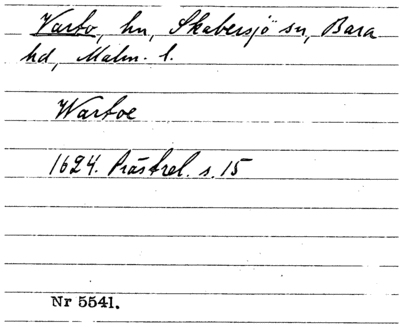 Varbo, hn, Skabersjö sn, Bara
hd, Malm. l.
Warboe
1624. Prästrel. s. 15
Nr 5541.